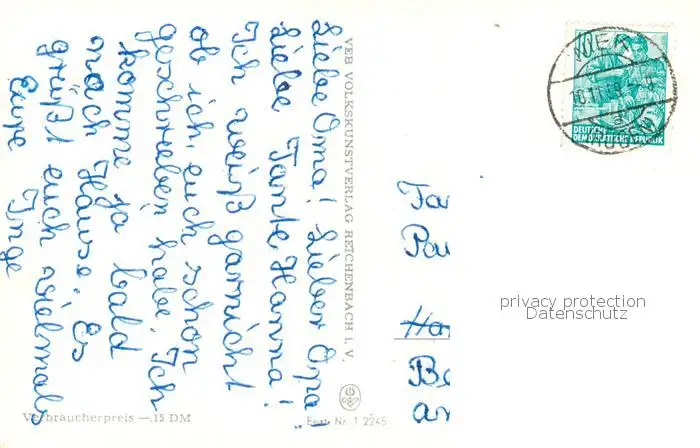 Liebe Oma! Lieber Opa!
Liebe Tante Hanna!
Ich weiß garnicht
ob ich euch schon
geschrieben habe. Ich
komme ja bald
nach Hause. Es
grüßt euch vielmals
Eure Inge
VEB VOLKSKUNSTVERLAG REICHENBACH I. V.
Verbraucherpreis —.15 DM
Best. Nr. 1 2245
DEUTSCHE
DEMOKRATISCHE REPUBLIK
privacy protection
Datenschutz